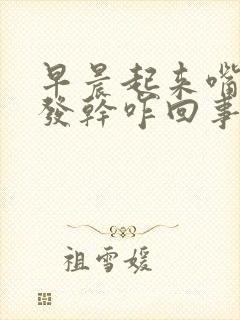 早晨起来嘴
發幹咋回事
祖雪媛